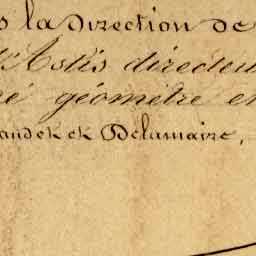 s la Direction de
Astis directeu
é géomètre e
andek ek Delamaire,